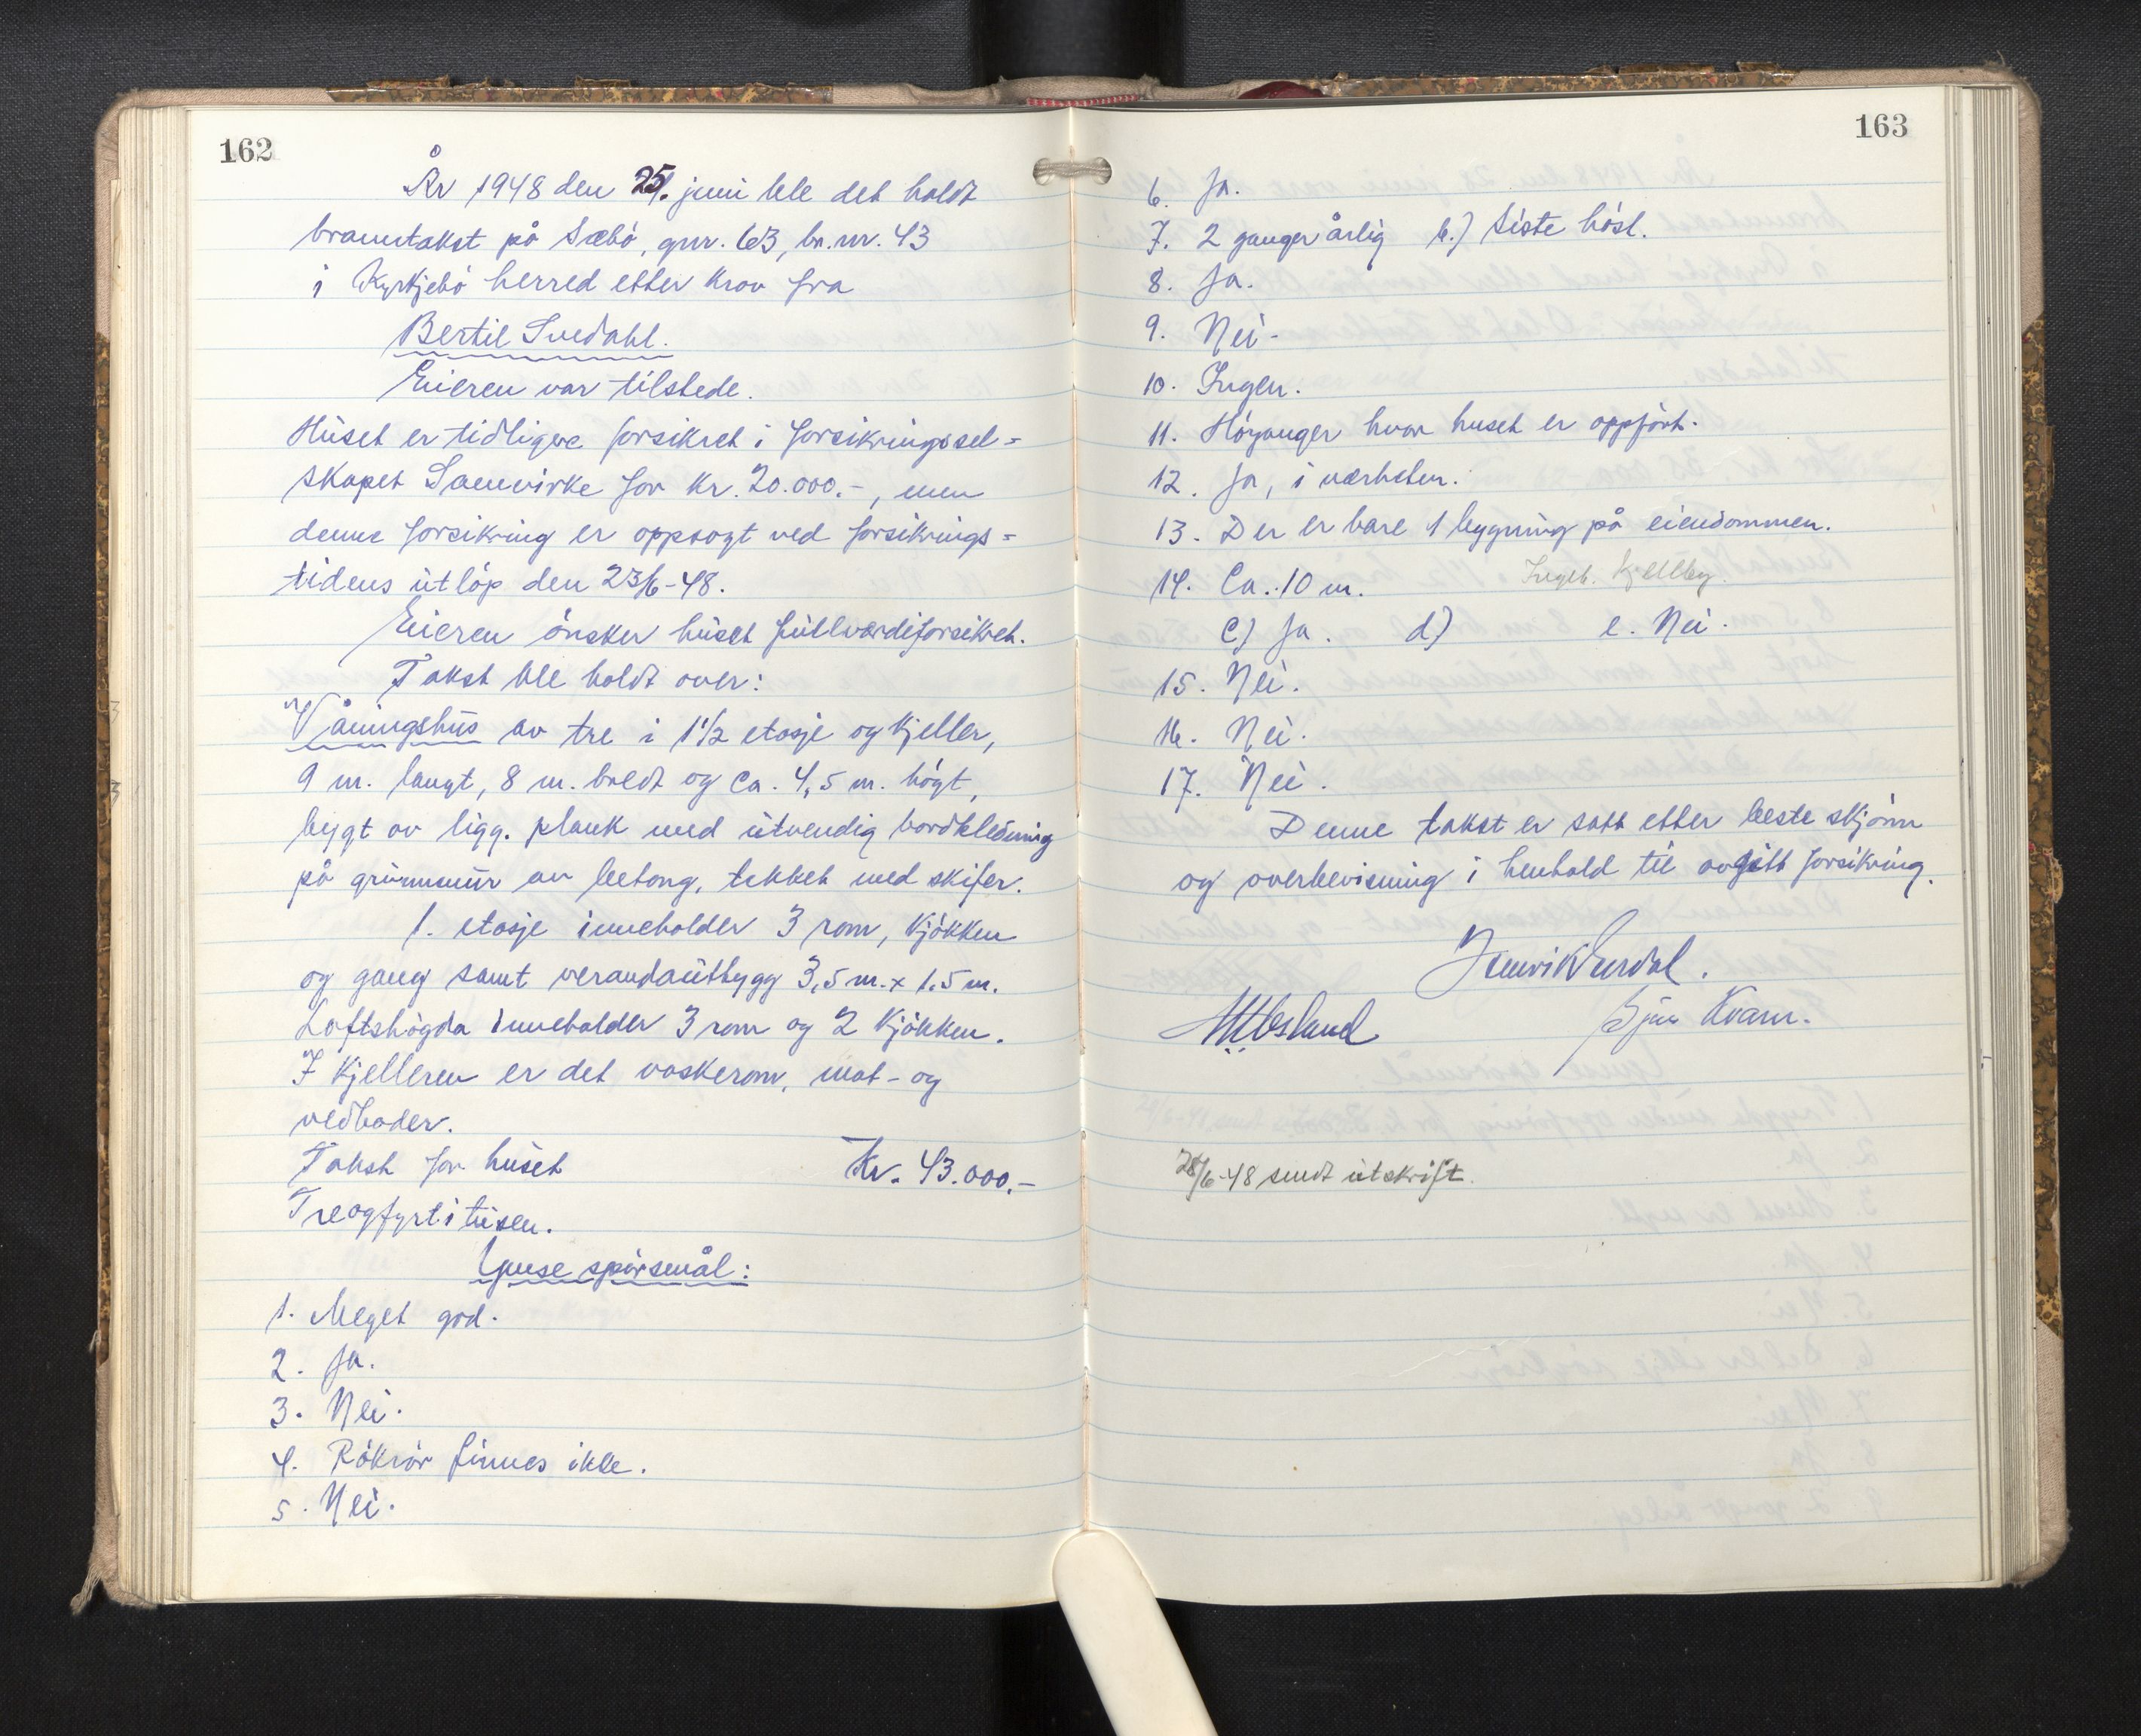 162
År 1948 den 25. juni ble det holdt
branntakst på Sæbö, gnr. 63, br.nr. 43
i Kyrkjebö herred etter krav fra
Bertil Svedahl.
Eieren var tilstede.
Huset er tidligere forsikret i forsikringssel=
skapet Samvirke for kr. 20.000.-, men
denne forsikring er oppsagt ved forsikrings=
tidens utlöp den 23/6-48.
Eieren önsker huset fullverdiforsikret.
Takst ble holdt over:
Våningshus av tre i 1 1/2 etasje og kjeller,
9 m. langt, 8 m. bredt og ca. 4,5 m. högt,
bygt av ligg. plank med utvendig bordkledning
på grunnmur av betong, tekket med skifer.
1. etasje inneholder 3 rom, kjökken
og gang samt verandautbygg 3,5 m. x 1.5 m.
Loftshögda inneholder 3 rom og 2 kjökken.
I kjelleren er det vaskerom, mat- og
vedboder.
Takst for huset Kr. 43.000.-
Treogfyrtitusen.
Ymse spörsmål:
1. Meget god.
2. Ja.
3. Nei.
4. Rökrör finnes ikke.
5. Nei.
163
6. Ja.
7. 2 ganger årlig b.) Siste höst.
8. Ja.
9. Nei.
10. Ingen.
11. Höyanger hvor huset er oppfört.
12. Ja, i nærheten.
13. Der er bare 1 bygning på eiendommen.
14. Ca. 10 m. Ingeb.
c) Ja. d) e. Nei.
15. Nei.
16. Nei.
17. Nei.
Denne takst er satt etter beste skjönn
og overbevisning i henhold til avgitt forsikring.
Henrik
Osland Kvam.
28/6-48 sendt utskrift.